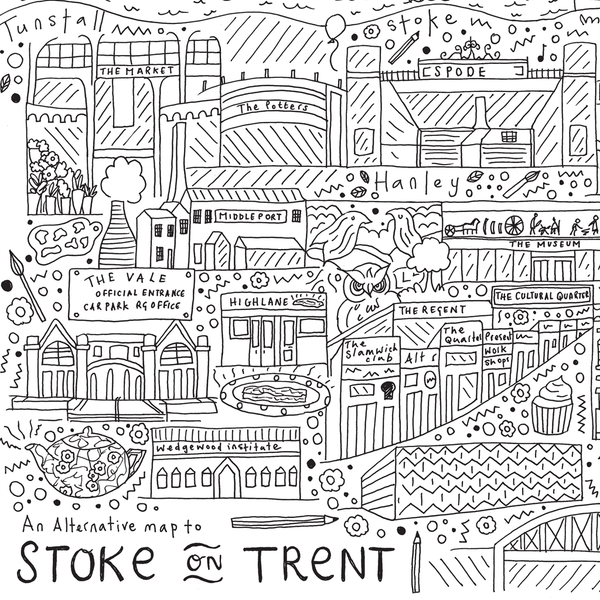 Tunstall
stoke m
THE MARKET
SPODE
The Potters
Hanley
MIDDLEPORT
THE MUSEUM
THE VALE
OFFICIAL ENTRANCE
CAR PARK RG OFFICE
HIGHLANE
THE CULTURAL QUARTER
THE REGENT
The Slamwich club
Alt s
The Quarter
Present Work Shops
Wedgewood institute
An Alternative map to
STOKE ON TRENT